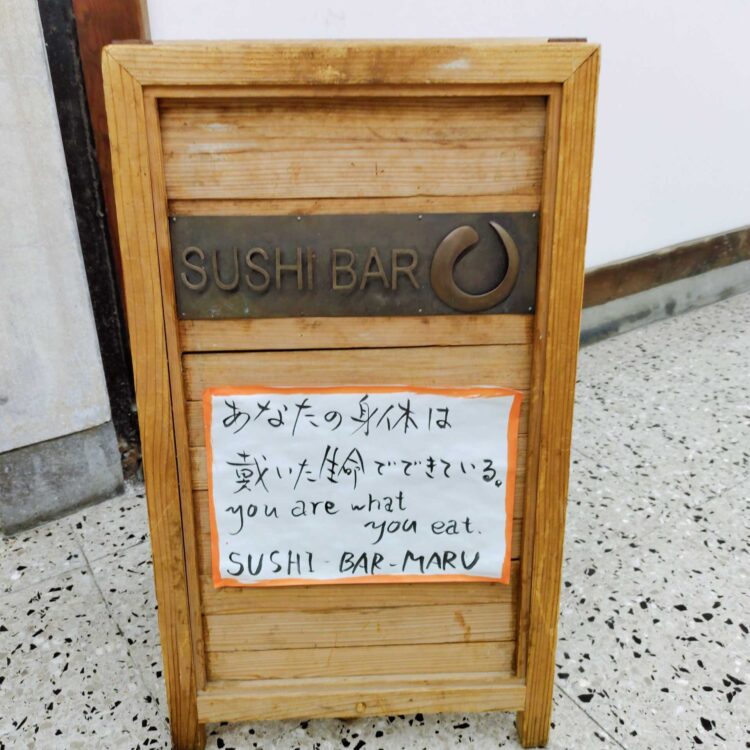 SUSHi BAR
あなたの身体は
戴いた生命でできている。
you are what
you eat.
SUSHI-BAR-MARU